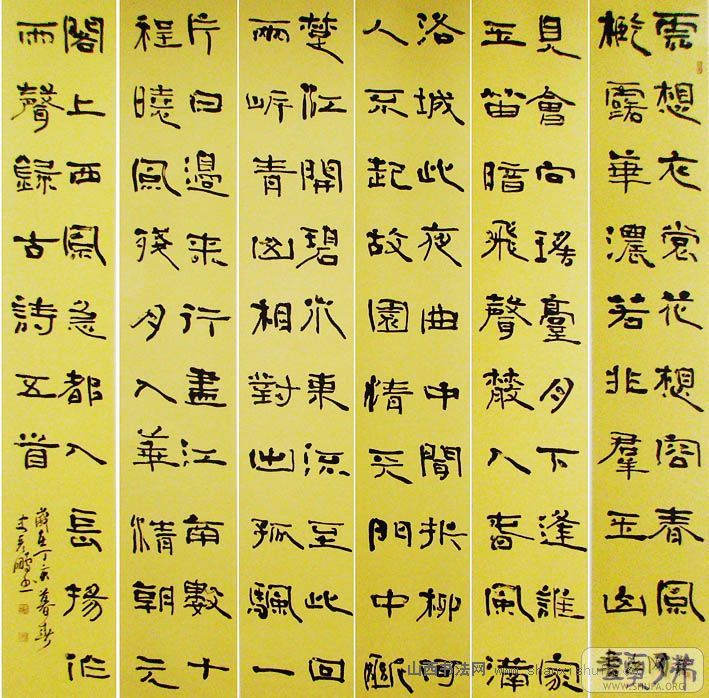 雲想衣裳花想容春風拂
檻露華濃若非羣玉山
見會向瑤臺月下逢誰家
玉笛暗飛聲散入春風滿
洛城此夜曲中聞折柳何
人不起故園情天門中斷
楚江開碧水東流至此回
兩岸青山相對出孤颿一
片日邊来行盡江南數十
程曉風殘月入華清朝元
閣上西風急都入長楊作
雨聲録古詩五首
歲在丁亥暮春
鵬書
山西书法网
WWW.SHUFA.ORG